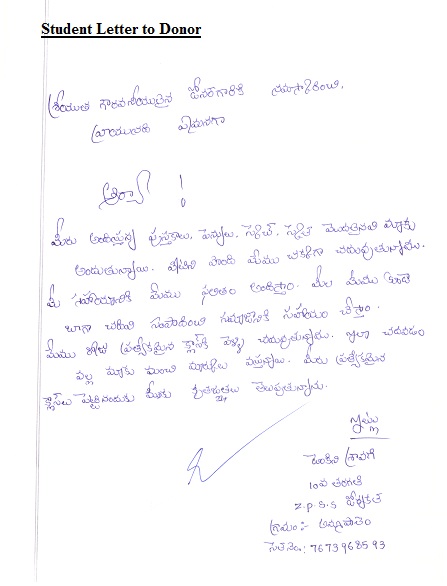 Student Letter to Donor
శ్రీయుత గౌరవనీయులైన డోనర్‌గారికి నమస్కరించి,
వ్రాయునది ఏమనగా
ఆర్యా!
మీరు అందిస్తున్న పుస్తకాలు, పెన్నులు, స్కెచ్, మొదలైనవి మాకు
అందుతున్నాయి. వీటిని పొంది మేము చక్కగా చదువుతున్నాము.
మీ సహాయానికి మేము ఫలితం అందిస్తాం. మేము కూడా
బాగా చదివి సంపాదించి సమాజానికి సహాయం చేస్తాం.
మేము ప్రత్యేకమైన క్లాస్‌కి వెళ్ళి చదువుతున్నాము. ఇలా చదవడం
వల్ల మాకు మంచి మార్కులు వస్తున్నాయి. మీరు ప్రత్యేకమైన
క్లాస్‌లు పెట్టినందుకు మీకు కృతజ్ఞతలు తెలుపుతున్నాను.
ఇట్లు
శ్రావణి
10వ తరగతి
Z.P.S.S
గ్రామం:-
సెల్ నెం: 7673968593